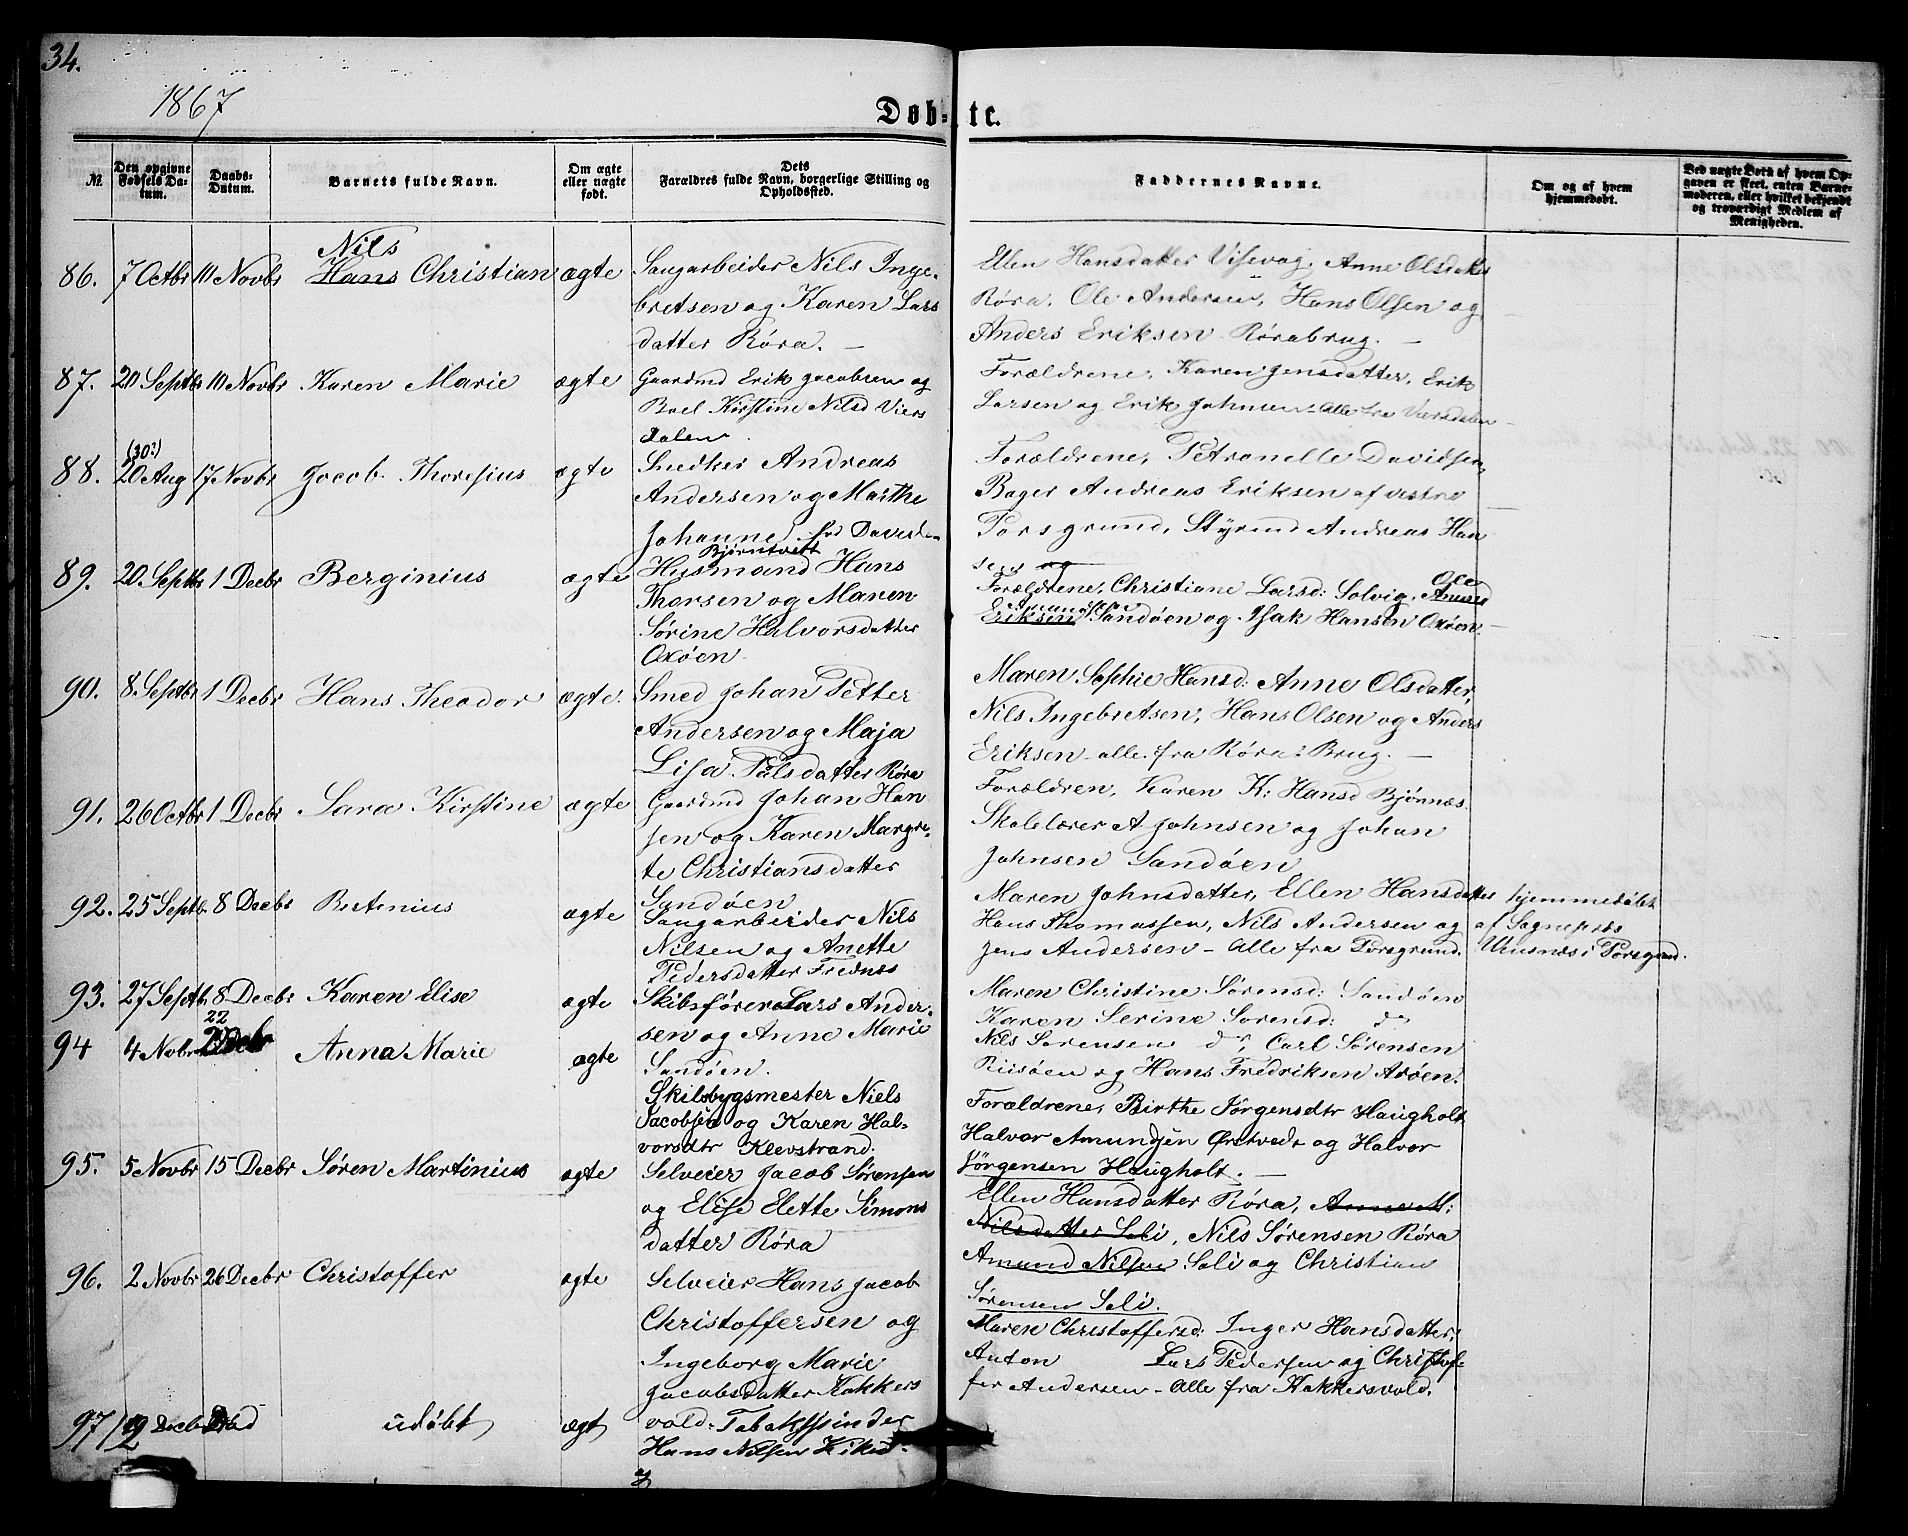 34.
1867
Døbte.
№
Den opgivne Fødsels Datum.
Daabs-Datum.
Barnets fulde Navn.
Om ægte eller uægte født.
Dets Forældres fulde Navn, borgerlige Stilling og Opholdssted.
Faddernes Navne.
Om og af hvem hjemmedøbt.
Ved uægte Børn af hvem Opgaven er skeet, enten Barnemoderen, eller hvilket bekjendt og troværdigt Medlem af Menigheden.
86. 7 Octbr 10 Novbr Nils Hans Christian ægte
Saugarbeider Nils Inge-
bretsen og Karen Lars
datter Röra. —
Ellen Hansdatter Visevag, Anne Olsdatter
Röra, Ole Andersen, Hans Olsen og
Anders Eriksen Rörabrug. —
87. 20 Septbr 10 Novbr Karen Marie ægte
Gaardmd Erik Jacobsen og
Boel Kirstine Nilsd Viers
dalen.
Forældrene, Karen Jensdatter, Erik
Larsen og Erik Johnsen. Alle fra Viersdalen
88. (30?) 20 Aug 17 Novbr Jacob Thoresius ægte
Snedker Andreas
Andersen og Marthe
Johanne fød Davidsen
Bjørntvedt
Forældrene, Petronelle Davidsen,
Bager Andreas Eriksen af vestre
Porsgrund, Styrmd Andreas Han
sen og
89. 20 Septbr 1 Decbr Berginius ægte
Husmand Hans
Thorsen og Maren
Sörine Halvorsdatter
Oxöen
Forældrene, Christiane Larsd: Solvig, Ole Amund
Eriksen Amundsen Sandöen og Isak Hansen Oxöen.
90. 8 Septbr 1 Decbr Hans Theodor ægte.
Smed Johan Petter
Andersen og Maja
Lisa Palsdatter Röra
Maren Sophie Hansd: Anne Olsdatter,
Nils Ingebretsen, Hans Olsen og Anders
Eriksen – alle fra Röra Brug. —
91. 26 Octbr 1 Decbr Sara Kirstine ægte
Gaardmd Johan Han
sen og Karen Margre-
te Christiansdatter
Sandöen
Forældren, Karen K: Hansd Bjönnæs.
Skolelærer A Johnsen og Johan
Johnsen Sandöen
92. 25 Septb. 8 Decbr Betenius ægte
Saugarbeider Nils
Nilsen og Anette
Pedersdatter Frednæs
Maren Johnsdatter, Ellen Hansdatter
Hans Thomassen, Nils Andersen og
Jens Andersen – Alle fra Porsgrund.
hjemmedöbt
af Sognepræst
i Porsgrund.
93. 27 Septbr 8 Decbr Karen Elise ægte
Skibsförer Lars Ander-
sen og Anne Marie
Sandöen.
Maren Christine Sörensd: Sandöen
Karen Serine Sorensd: do
Nils Sorensen do, Carl Sörensen
Riisöen og Hans Fredriksen Aröen.
94 4 Novbr 22 Decbr Anna Marie ægte
Skibsbygsmester Niels
Jacobsen og Karen Hal-
vorsdtr Klevstrand.
Forældrene, Birthe Jörgensdtr Haugholt
Halvor Amundsen Örstvedt og Halvor
Jörgensen Haugholt. —
95. 5 Novbr 15 Decbr Sören Martinius ægte
Selveier Jacob Sörensen
og Elise Elette Simons
datter Röra
Ellen Hansdatter Röra, Anne M:
Nilsdatter Soli, Nils Sörensen Röra
Amund Nilsen Soli og Christian
Sörensen Soli.
96. 2 Novbr 26 Decbr Christoffer ægte
Selveier Hans Jacob
Christoffersen og
Ingeborg Marie
Jacobsdatter Kokkers
vold.
Maren Christoffersd: Inger Hansdatter,
Anton Lars Pedersen og Christof
fer Andersen – Alle fra Kokkersvold.
97 12 Decbr Död udöbt ægt
Tabakspinder
Hans Nilsen
og